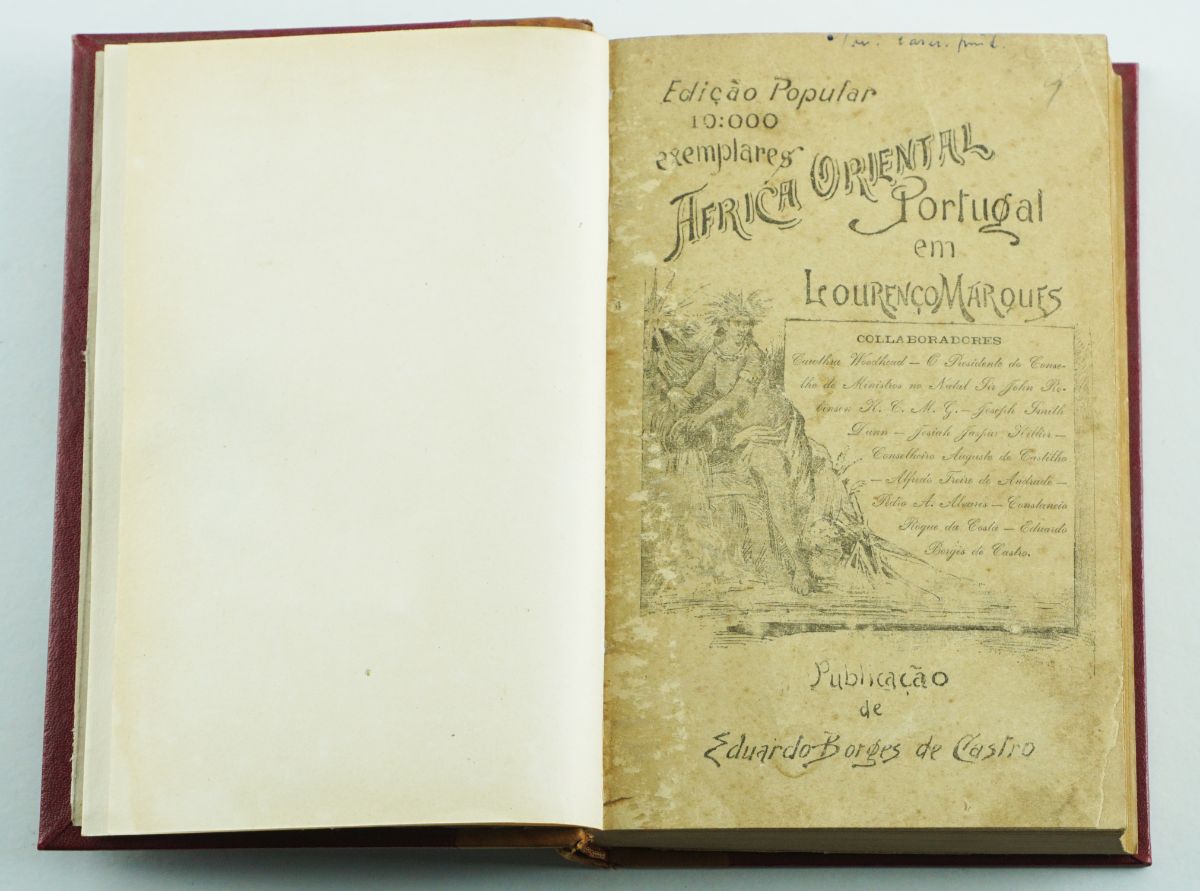 Edição Popular
10:000
exemplares
AFRICA ORIENTAL
Portugal
em
LOURENÇO MARQUES
COLLABORADORES
Carothsa Woodhead — O Presidente do Conse-
lho de Ministros no Natal Sir John Ro-
binson K. C. M. G. — Joseph Smith
Dunn — Josiah Jaspar Hillier —
Conselheiro Augusto de Castilho
— Alfredo Freire de Andrade —
Pedro A. Alvares — Constancio
Roque da Costa — Eduardo
Borges de Castro.
Publicação
de
Eduardo Borges de Castro